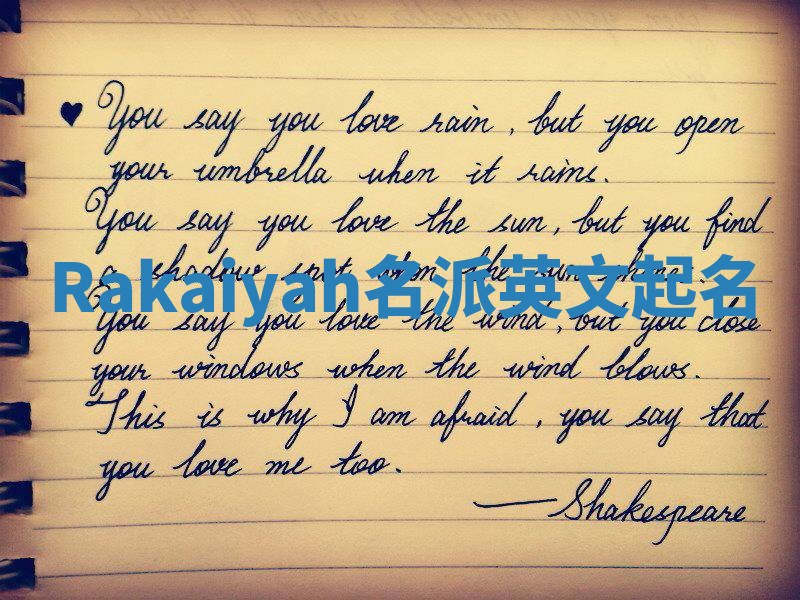 ♥ You say you love rain, but you open
your umbrella when it rains.
You say you love the sun, but you find
a shadow spot when the sun shines.
Rakaiyah名派英文起名
You say you love the wind, but you close
your windows when the wind blows.
This is why I am afraid, you say that
you love me too.
—Shakespeare